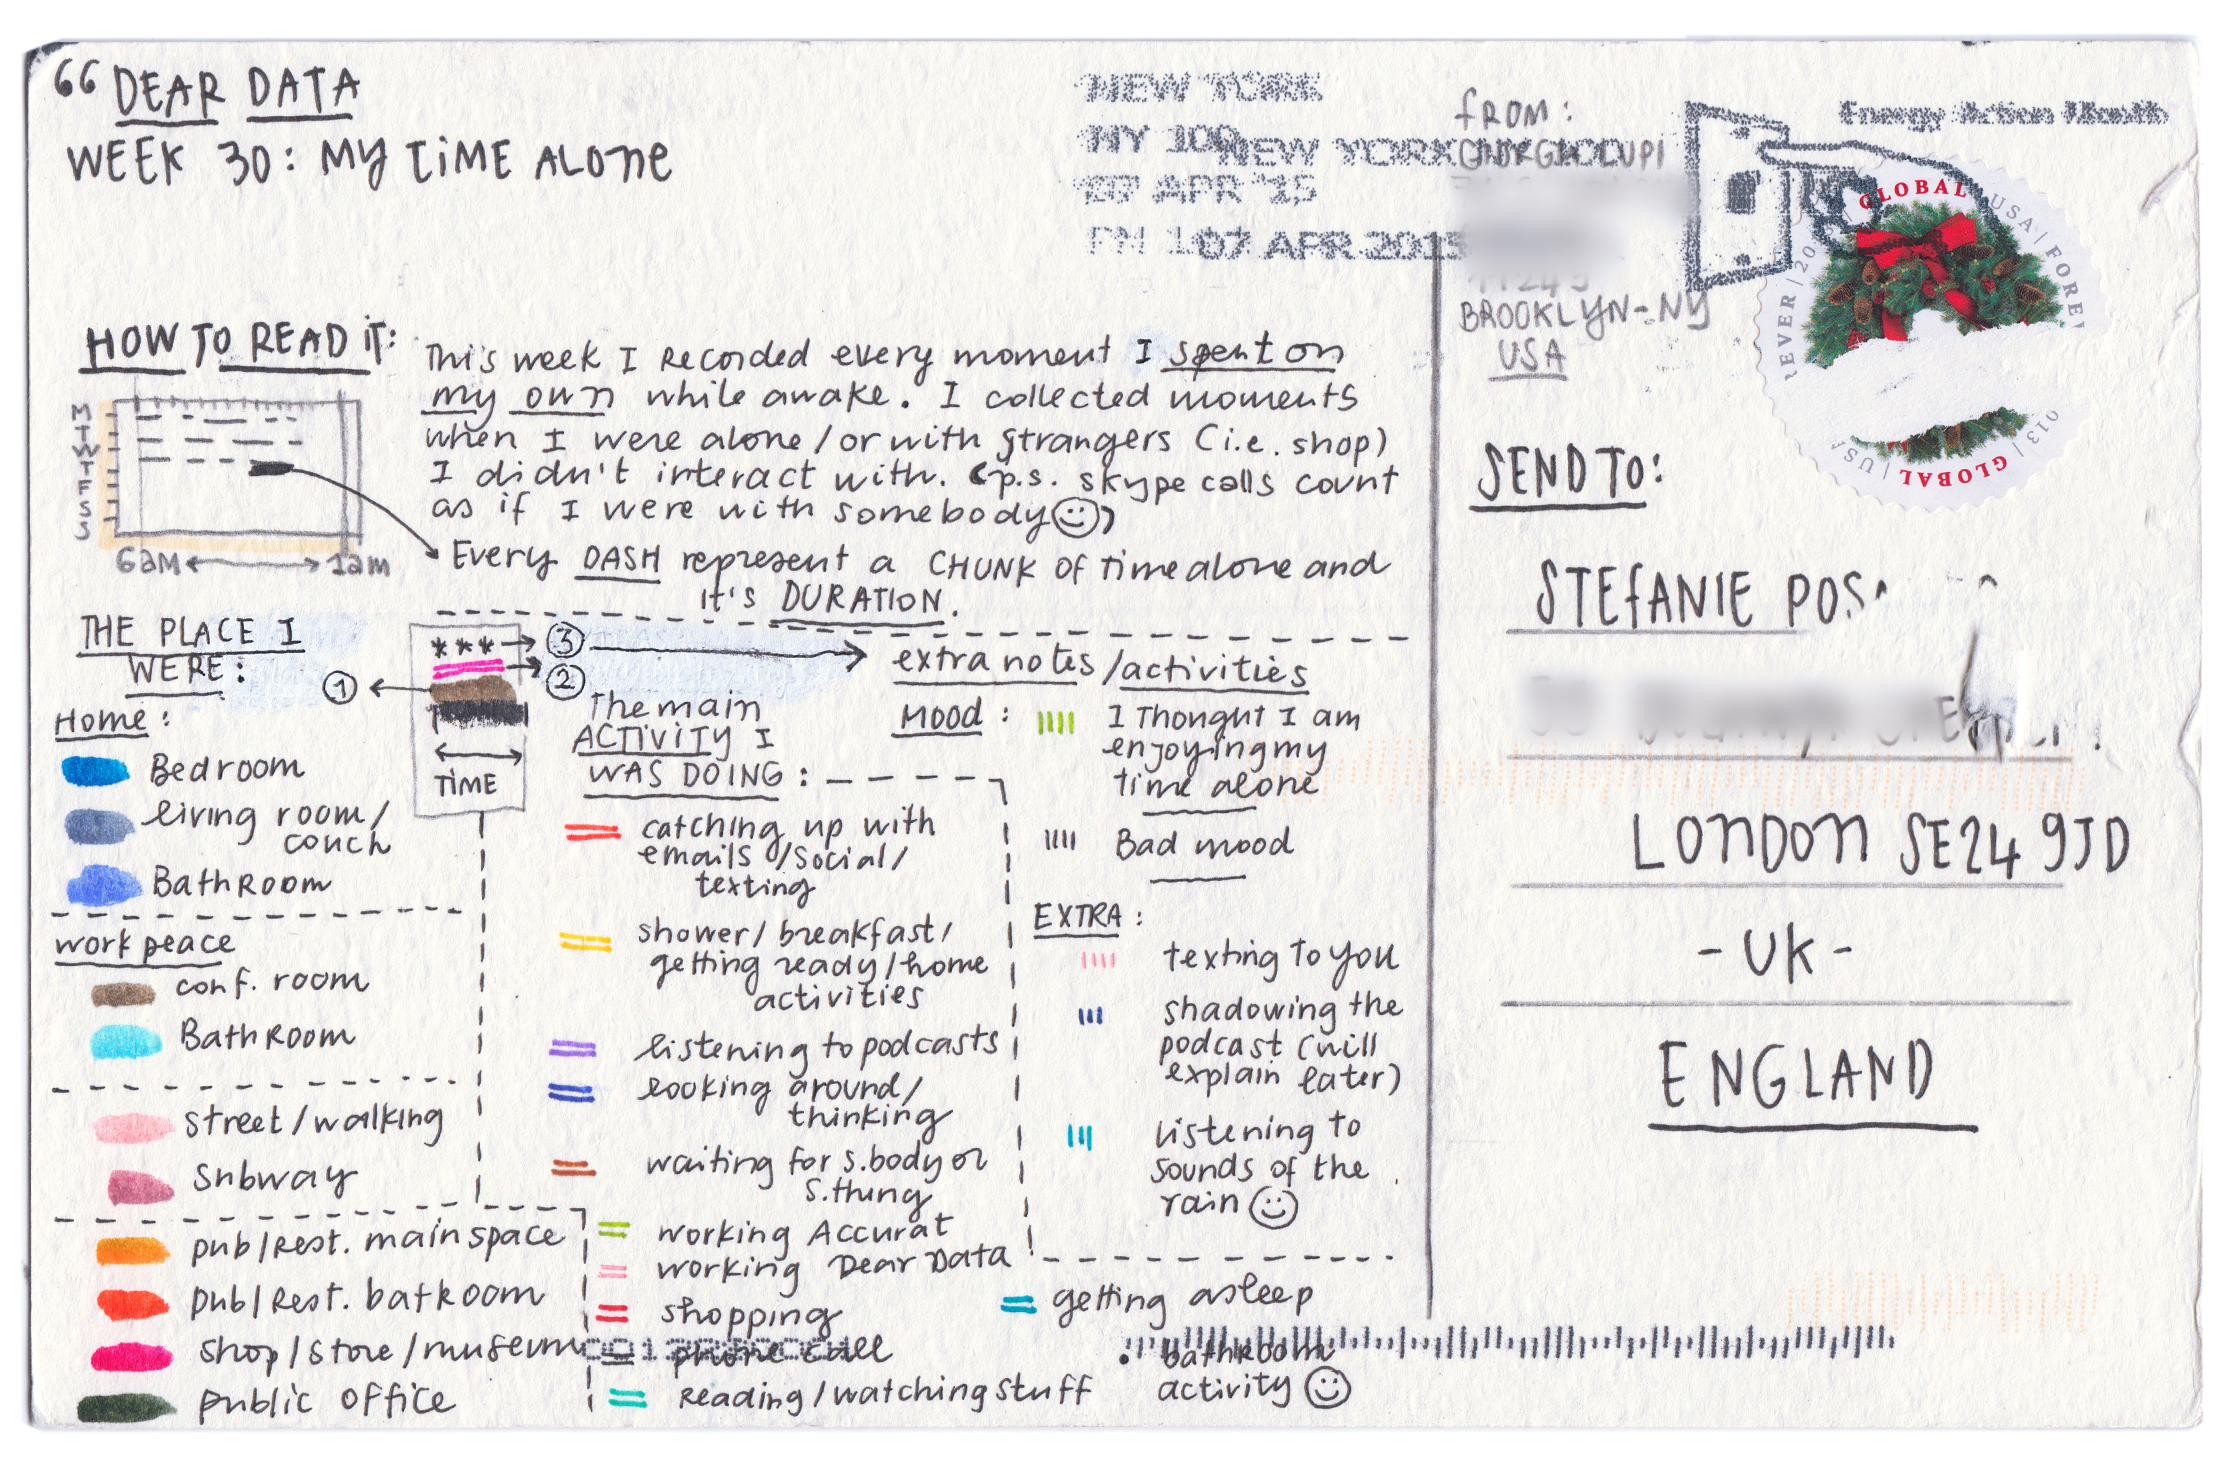 “ DEAR DATA
WEEK 30: MY TIME ALONE
NEW YORK
NY 100
07 APR '15
PM 1
NEW YORK
07 APR 2015
FROM:
BROOKLYN-NY
USA
Energy Action Month
GLOBAL USA FOREVER 2013
GLOBAL USA
HOW TO READ IT:
M
T
W
T
F
S
S
6am 1am
This week I recorded every moment I spent on
my own while awake. I collected moments
when I were alone/or with strangers (i.e. shop)
I didn't interact with. (p.s. skype calls count
as if I were with somebody☺)
Every DASH represent a CHUNK of time alone and
it's DURATION.
THE PLACE I
WERE:
1
*** 3
2
TIME
Home:
Bedroom
living room/
couch
Bathroom
work peace
conf. room
Bathroom
street/walking
Subway
pub/rest. main space
pub/rest. batroom
shop/store/museum
public office
The main
ACTIVITY I
WAS DOING:
catching up with
emails/social/
texting
shower/breakfast/
getting ready/home
activities
listening to podcasts
looking around/
thinking
waiting for s.body or
s.thing
working Accurat
working Dear Data
shopping
phone call
reading/watching stuff
getting asleep
bathroom
activity ☺
extra notes/activities
MOOD:
I Thought I am
enjoying my
time alone
Bad mood
EXTRA:
texting to you
shadowing the
podcast (will
explain later)
listening to
sounds of the
rain ☺
SEND TO:
STEFANIE
LONDON SE24 9JD
- UK -
ENGLAND